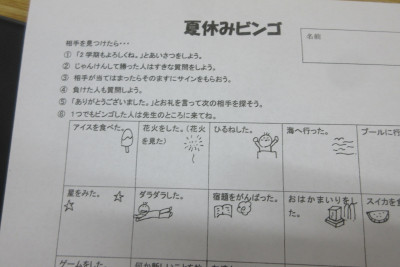 夏休みビンゴ
名前
相手を見つけたら・・・
① 「2学期もよろしくね。」とあいさつをしよう。
② じゃんけんして勝った人はすきな質問をしよう。
③ 相手が当てはまったらそのますにサインをもらおう。
④ 負けた人も質問しよう。
⑤ 「ありがとうございました。」とお礼を言って次の相手を探そう。
⑥ 1つでもビンゴした人は先生のところに来てね。
アイスを食べた。
花火をした。(花火
を見た)
ひるねした。
海へ行った。
プールに行
星をみた。
ダラダラした。
宿題をがんばった。
おはかまいりをし
た。
スイカを食
ゲームをした。